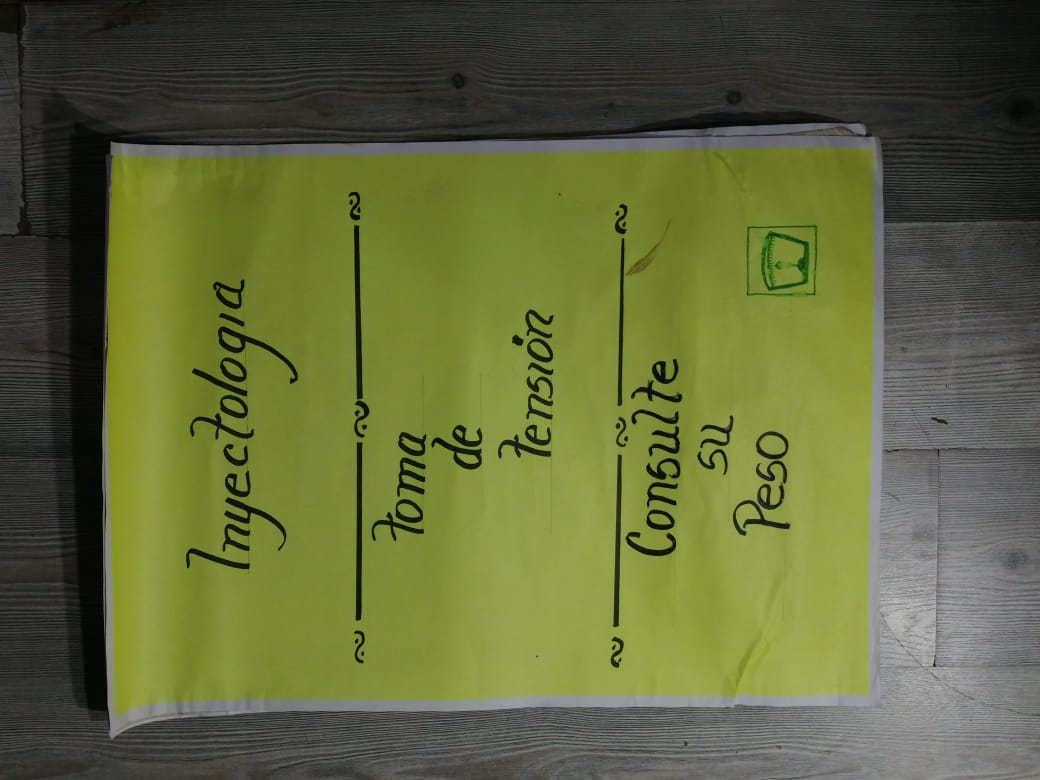 Inyectologia
toma
de
tensión
Consulte
su
Peso